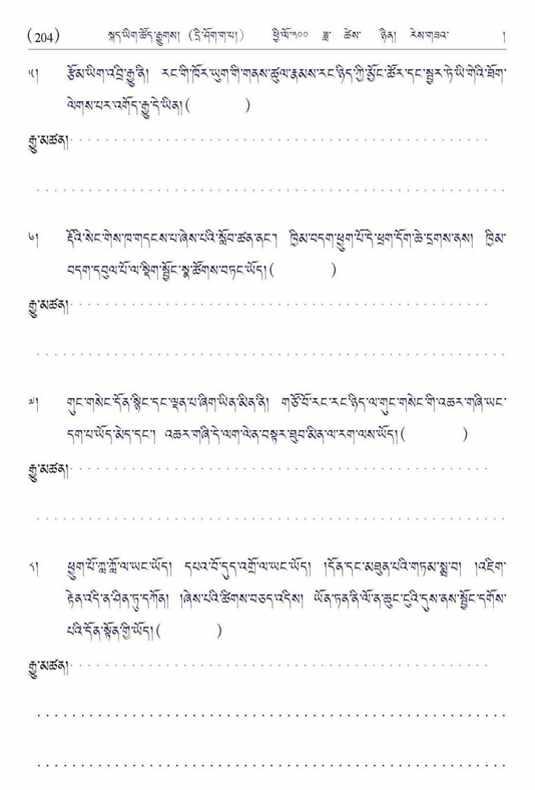 (204) སྐད་ཡིག་ཚོད་རྒྱགས། (དྲི་ཤོག་ག་པ།) ཕྱི་ལོ་༢༠༠ ཟླ་ ཚེས་ ཉིན། རེས་གཟའ་ །
༥། རྩོམ་ཡིག་འབྲི་རྒྱུ་ནི། རང་གི་ཁོར་ཡུག་གི་གནས་ཚུལ་རྣམས་རང་ཉིད་ཀྱི་མྱོང་ཚོར་དང་སྦྱར་ཏེ་ཡི་གེའི་ཐོག་
ལེགས་པར་འགོད་རྒྱུ་དེ་ཡིན།( )
རྒྱུ་མཚན།
༦། རྡོའི་སེང་གེས་ཁ་གདངས་པ་ཞེས་པའི་སློབ་ཚན་ནང་། ཁྱིམ་བདག་ཕྱུག་པོ་དེ་ཕྲག་དོག་ཆེ་དྲགས་ནས། ཁྱིམ་
བདག་དབུལ་པོ་ལ་སྡིག་སྦྱོང་སྣ་ཚོགས་བཏང་ཡོད།( )
རྒྱུ་མཚན།
༧། གུང་གསེང་དོན་སྙིང་དང་ལྡན་པ་ཞིག་ཡིན་མིན་ནི། གཙོ་བོ་རང་རང་ཉིད་ལ་གུང་གསེང་གི་འཆར་གཞི་ཡང་
དག་པ་ཡོད་མེད་དང་། འཆར་གཞི་དེ་ལག་ལེན་བསྟར་ཐུབ་མིན་ལ་རག་ལས་ཡོད།( )
རྒྱུ་མཚན།
༨། ཕྱུག་པོ་ཀླ་ཀློ་ལ་ཡང་ཡོད། དཔའ་བོ་དུད་འགྲོ་ལ་ཡང་ཡོད། །དོན་དང་མཐུན་པའི་གཏམ་སྨྲ་བ། །འཇིག་
རྟེན་འདི་ན་ཤིན་ཏུ་དཀོན། །ཞེས་པའི་ཚིགས་བཅད་འདིས། ཡོན་ཏན་ནི་ལོ་ན་ཆུང་ངུའི་དུས་ནས་སྦྱོང་དགོས་
པའི་དོན་སྟོན་གྱི་ཡོད།( )
རྒྱུ་མཚན།